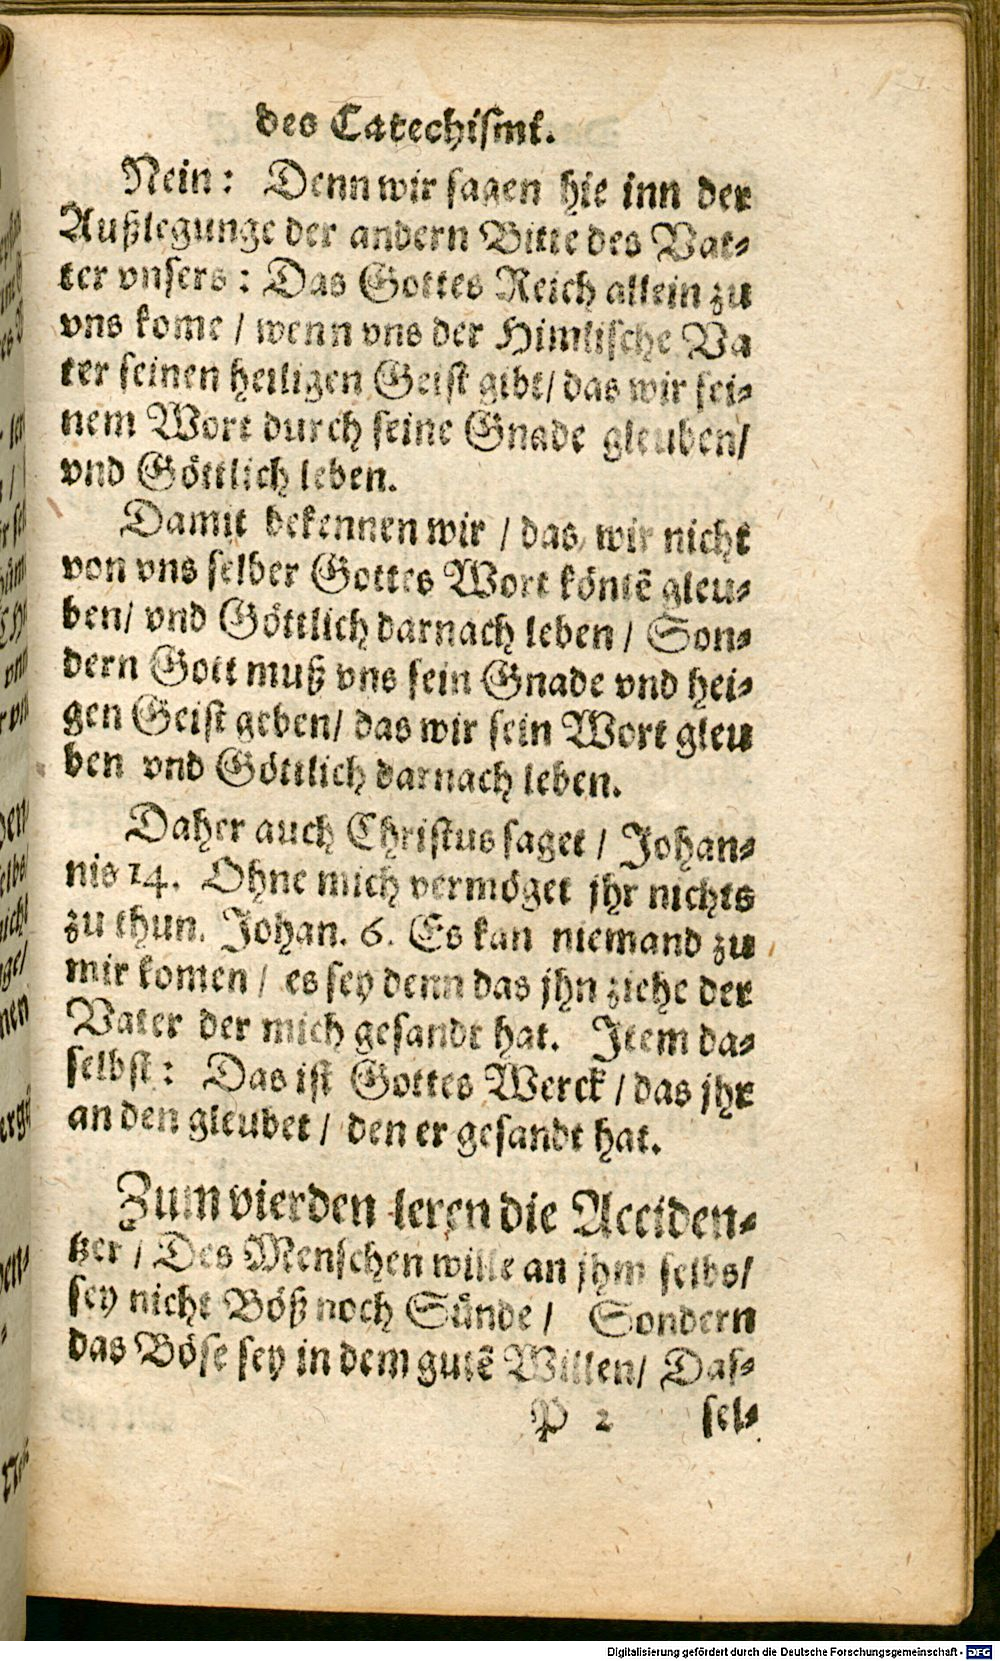 des Catechismi.
Nein: Denn wir sagen hie inn der
Außlegunge der andern Bitte des Vat-
ter vnsers: Das Gottes Reich allein zu
vns kome / wenn vns der Himlische Va
ter seinen heiligen Geist gibt/ das wir sei-
nem Wort durch seine Gnade gleuben/
vnd Göttlich leben.
Damit bekennen wir / das wir nicht
von vns selber Gottes Wort köntē gleu-
ben/ vnd Göttlich darnach leben / Son-
dern Gott muß vns sein Gnade vnd hei-
gen Geist geben/ das wir sein Wort gleu
ben vnd Göttlich darnach leben.
Daher auch Christus saget / Johan-
nis 14. Ohne mich vermöget jhr nichts
zu thun. Johan. 6. Es kan niemand zu
mir komen / es sey denn das jhn ziehe der
Vater der mich gesandt hat. Item da-
selbst: Das ist Gottes Werck / das jhr
an den gleubet / den er gesandt hat.
Zum vierden leren die Acciden-
tzer / Des Menschen wille an jhm selbs/
sey nicht Böß noch Sünde / Sondern
das Böse sey in dem gutē Willen/ Das-
P 2 sel-
Digitalisierung gefördert durch die Deutsche Forschungsgemeinschaft - DFG